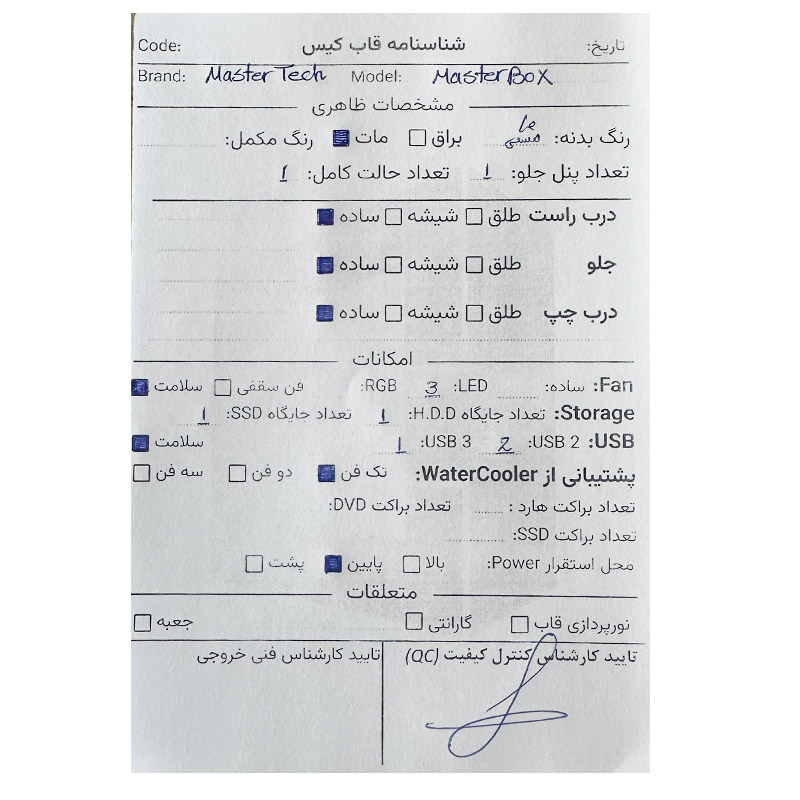 تاریخ: شناسنامه قاب کیس Code:
Brand: Master Tech Model: MasterBox
مشخصات ظاهری
رنگ بدنه: براق ☐ مات ■ رنگ مکمل:
تعداد پنل جلو: 1 تعداد حالت کامل: 1
درب راست طلق ☐ شیشه ☐ ساده ■
جلو طلق ☐ شیشه ☐ ساده ■
درب چپ طلق ☐ شیشه ☐ ساده ■
امکانات
Fan: ساده: LED: 3 RGB: فن سقفی ☐ سلامت ■
Storage: تعداد جایگاه H.D.D: 1 تعداد جایگاه SSD: 1
USB: USB 2: 2 USB 3: 1 سلامت ■
پشتیبانی از WaterCooler: تک فن ■ دو فن ☐ سه فن ☐
تعداد براکت هارد : تعداد براکت DVD:
تعداد براکت SSD:
محل استقرار Power: بالا ☐ پایین ■ پشت ☐
متعلقات
نورپردازی قاب ☐ گارانتی ☐ جعبه ☐
تایید کارشناس کنترل کیفیت (QC) تایید کارشناس فنی خروجی